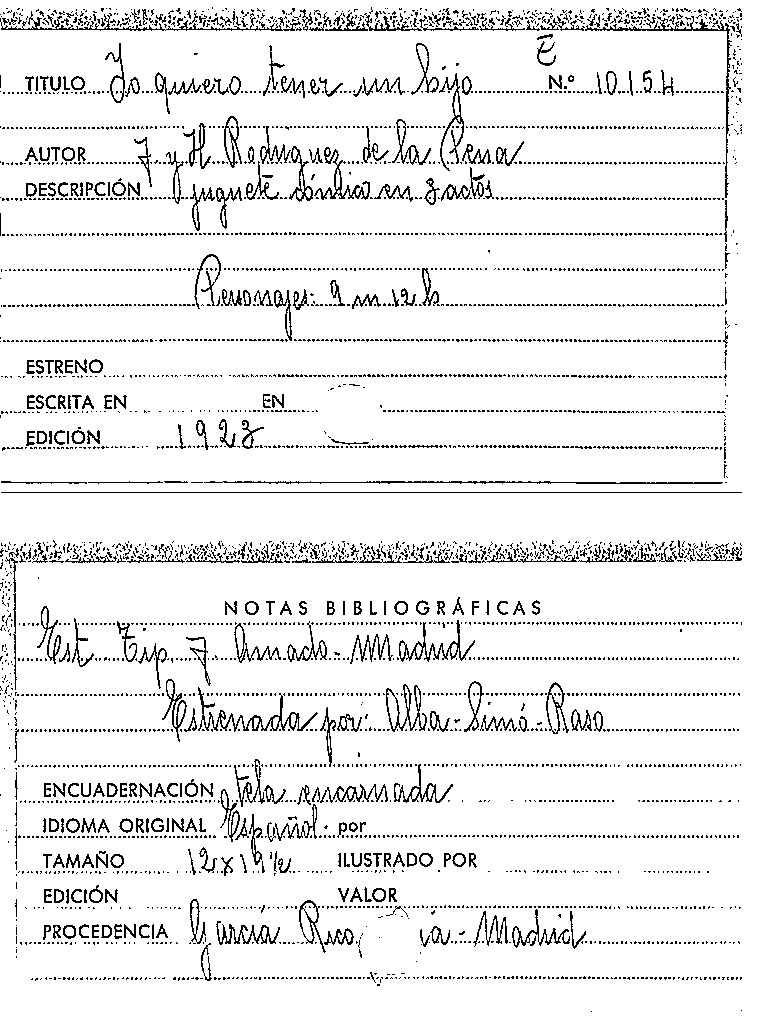 E
TITULO Yo quiero tener un hijo N.º 10154
AUTOR J y H Rodriguez de la Pena
DESCRIPCIÓN juguete cómico en 3 actos
Personajes: 9 m 12 h
ESTRENO
ESCRITA EN EN
EDICIÓN 1923
NOTAS BIBLIOGRÁFICAS
Est. Tip. J. Amado - Madrid
Estrenada por: Alba - Simó - Raso
ENCUADERNACIÓN tela encarnada
IDIOMA ORIGINAL Español. por
TAMAÑO 12 x 19 ½ ILUSTRADO POR
EDICIÓN VALOR
PROCEDENCIA García Rico, ia - Madrid